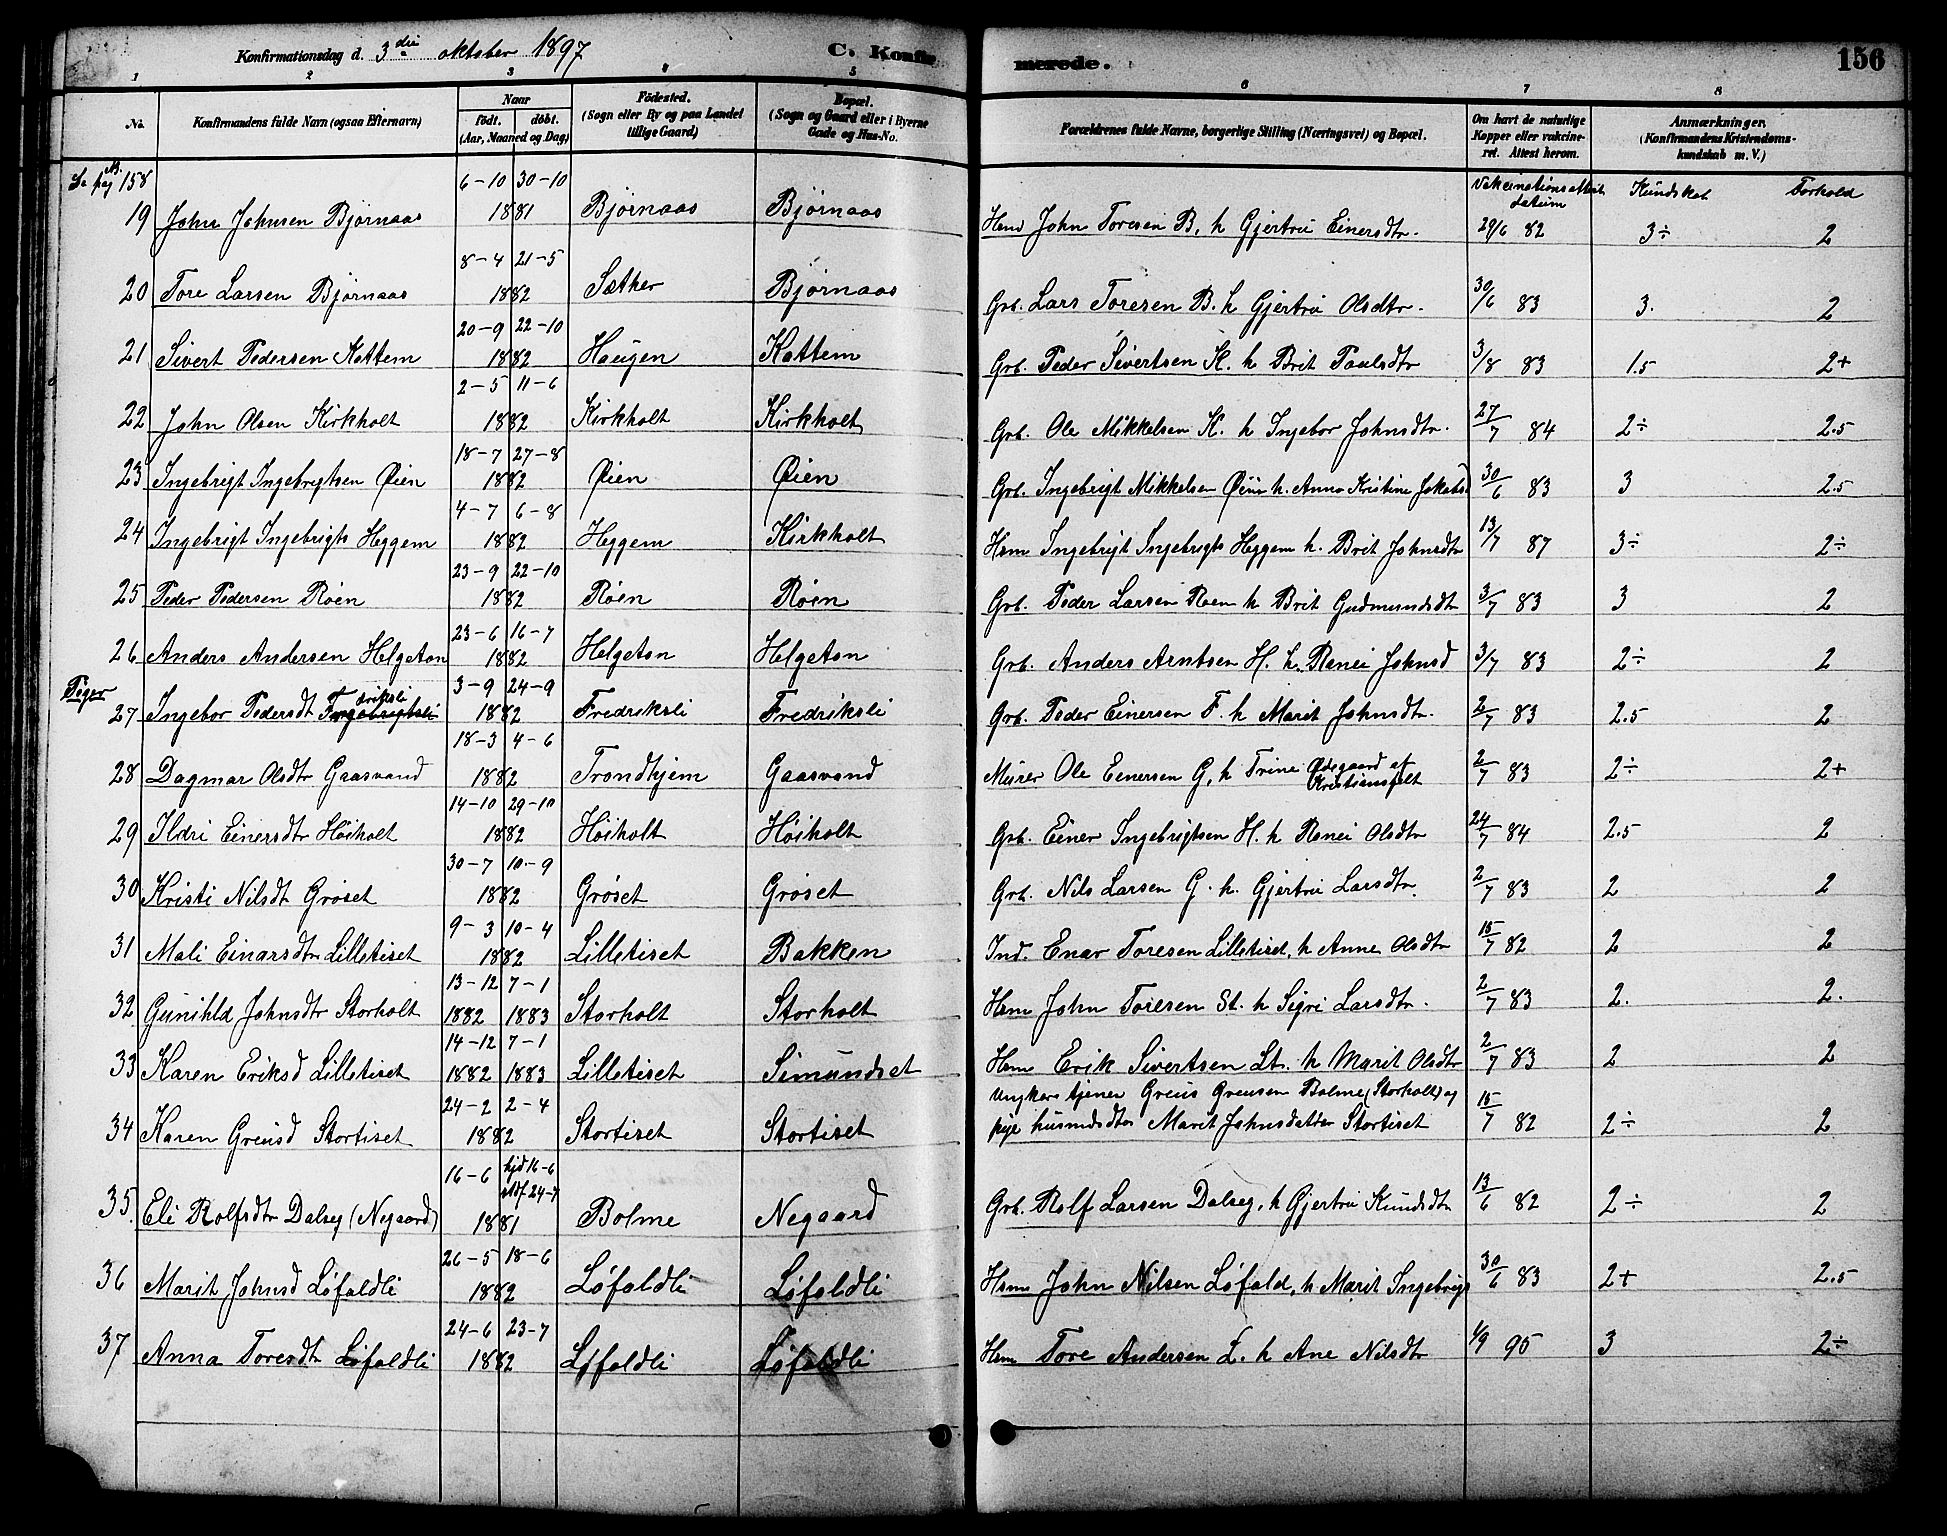 Konfirmationsdag d. 3die oktober 1897 C. Konfirmerede. 156
1 2 3 4 5 6 7 8
No. Konfirmandens fulde Navn (ogsaa Efternavn) Naar født. døbt. (Aar, Maaned og Dag) Födested. (Sogn eller By og paa Landet tillige Gaard) Bopæl. (Sogn og Gaard eller i Byerne Gade og Hus-No. Forældrenes fulde Navne, borgerlige Stilling (Næringsvei) og Bopæl. Om havt de naturlige Kopper eller vakcineret. Attest herom. Anmærkninger. (Konfirmandens Kristendomskundskab m. V.)
Se pag 158 Vakcinationsattest datum Kundskab Forhold
19 John Johnsen Bjørnaas 6-10 30-10 1881 Bjørnaas Bjørnaas Hsm John Toresen B, h Gjertru Einersdtr. 29/6 82 3÷ 2
20 Tore Larsen Bjørnaas 8-4 21-5 1882 Sæther Bjørnaas Grb. Lars Toresen B. h Gjertru Olsdtr. 30/6 83 3. 2
21 Sivert Pedersen Kattem 20-9 22-10 1882 Haugen Kattem Grb. Peder Sivertsen K. h Brit Paulsdtr 3/8 83 1.5 2+
22 John Olsen Kirkholt 2-5 11-6 1882 Kirkholt Kirkholt Grb. Ole Mikkelsen K. h Ingebor Johnsdtr. 27/7 84 2÷ 2.5
23 Ingebrigt Ingebrigtsen Øien 18-7 27-8 1882 Øien Øien Grb. Ingebrigt Mikkelsen Øien h. Anna Kristine Jakobsd 30/6 83 3 2.5
24 Ingebrigt Ingebrigts Heggem 4-7 6-8 1882 Heggem Kirkholt Hsm Ingebrigt Ingebrigts Heggem h. Brit Johnsdtr 13/7 87 3÷ 2÷
25 Peder Pedersen Røen 23-9 22-10 1882 Røen Røen Grb. Peder Larsen Roen h Brit Gudmundsdtr 3/7 83 3 2
26 Anders Andersen Helgeton 23-6 16-7 1882 Helgeton Helgeton Grb. Anders Arntsen H. h. Renei Johnsd 3/7 83 2÷ 2
Piger
27 Ingebor Pedersdt Fredriksli 3-9 24-9 1882 Fredriksli Fredriksli Grb. Peder Einersen F. h Marit Johnsdtr. 2/7 83 2.5 2
28 Dagmar Olsdtr Gaasvand 18-3 4-6 1882 Trondhjem Gaasvand Murer Ole Einersen G, h Trine Ødegaard af Kristiansfelt 2/7 83 2÷ 2+
29 Ildri Einersdtr Høiholt 14-10 29-10 1882 Høiholt Høiholt Grb. Einer Ingebrigtsen H. h Renei Olsdtr 24/7 84 2.5 2
30 Kristi Nilsdt Grøset 30-7 10-9 1882 Grøset Grøset Grb. Nils Larsen G. h. Gjertru Larsdtr. 2/7 83 2 2
31 Mali Einarsdtr Lilletiset 9-3 10-4 1882 Lilletiset Bakken Ind. Enar Toresen Lilletiset, h Anne Olsdtr 15/7 82 2 2
32 Gunihld Johnsdtr Storholt 13-12 1882 7-1 1883 Storholt Storholt Hsm John Toresen St. h Sigri Larsdtr. 2/7 83 2. 2.
33 Karen Eriksd Lilletiset 14-12 1882 7-1 1883 Lilletiset Simundset Hsm Erik Sivertsen Lt. h Marit Olsdtr 2/7 83 2 2
34 Karen Greusd Stortiset 24-2 2-4 1882 Stortiset Stortiset Ungkar tjener Greus Greusen Bolme (Storholt) og pige husmdsdtr Marit Johnsdatter Stortiset 15/7 82 2÷ 2
35. Eli Rolfsdtr Dalsey (Negaard) 16-6 hjd 16-6 stdf 24-7 1881 Bolme Negaard Grb. Rolf Larsen Dalseg, h Gjertru Knudsdtr 13/6 82 2÷ 2
36 Marit Johnsd Løfaldli 26-5 18-6 1882 Løfaldli Løfaldli Hsm John Nilsen Løfald, h Marit Ingebrigs 30/6 83 2+ 2.5
37 Anna Toresdtr Løfaldli 24-6 23-7 1882 Løfaldli Løfaldli Hsm Tore Andersen L. h Ane Nilsdtr 1/9 95 3 2÷